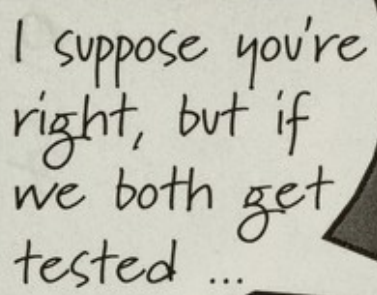 I suppose you're
right, but if
we both get
tested ...